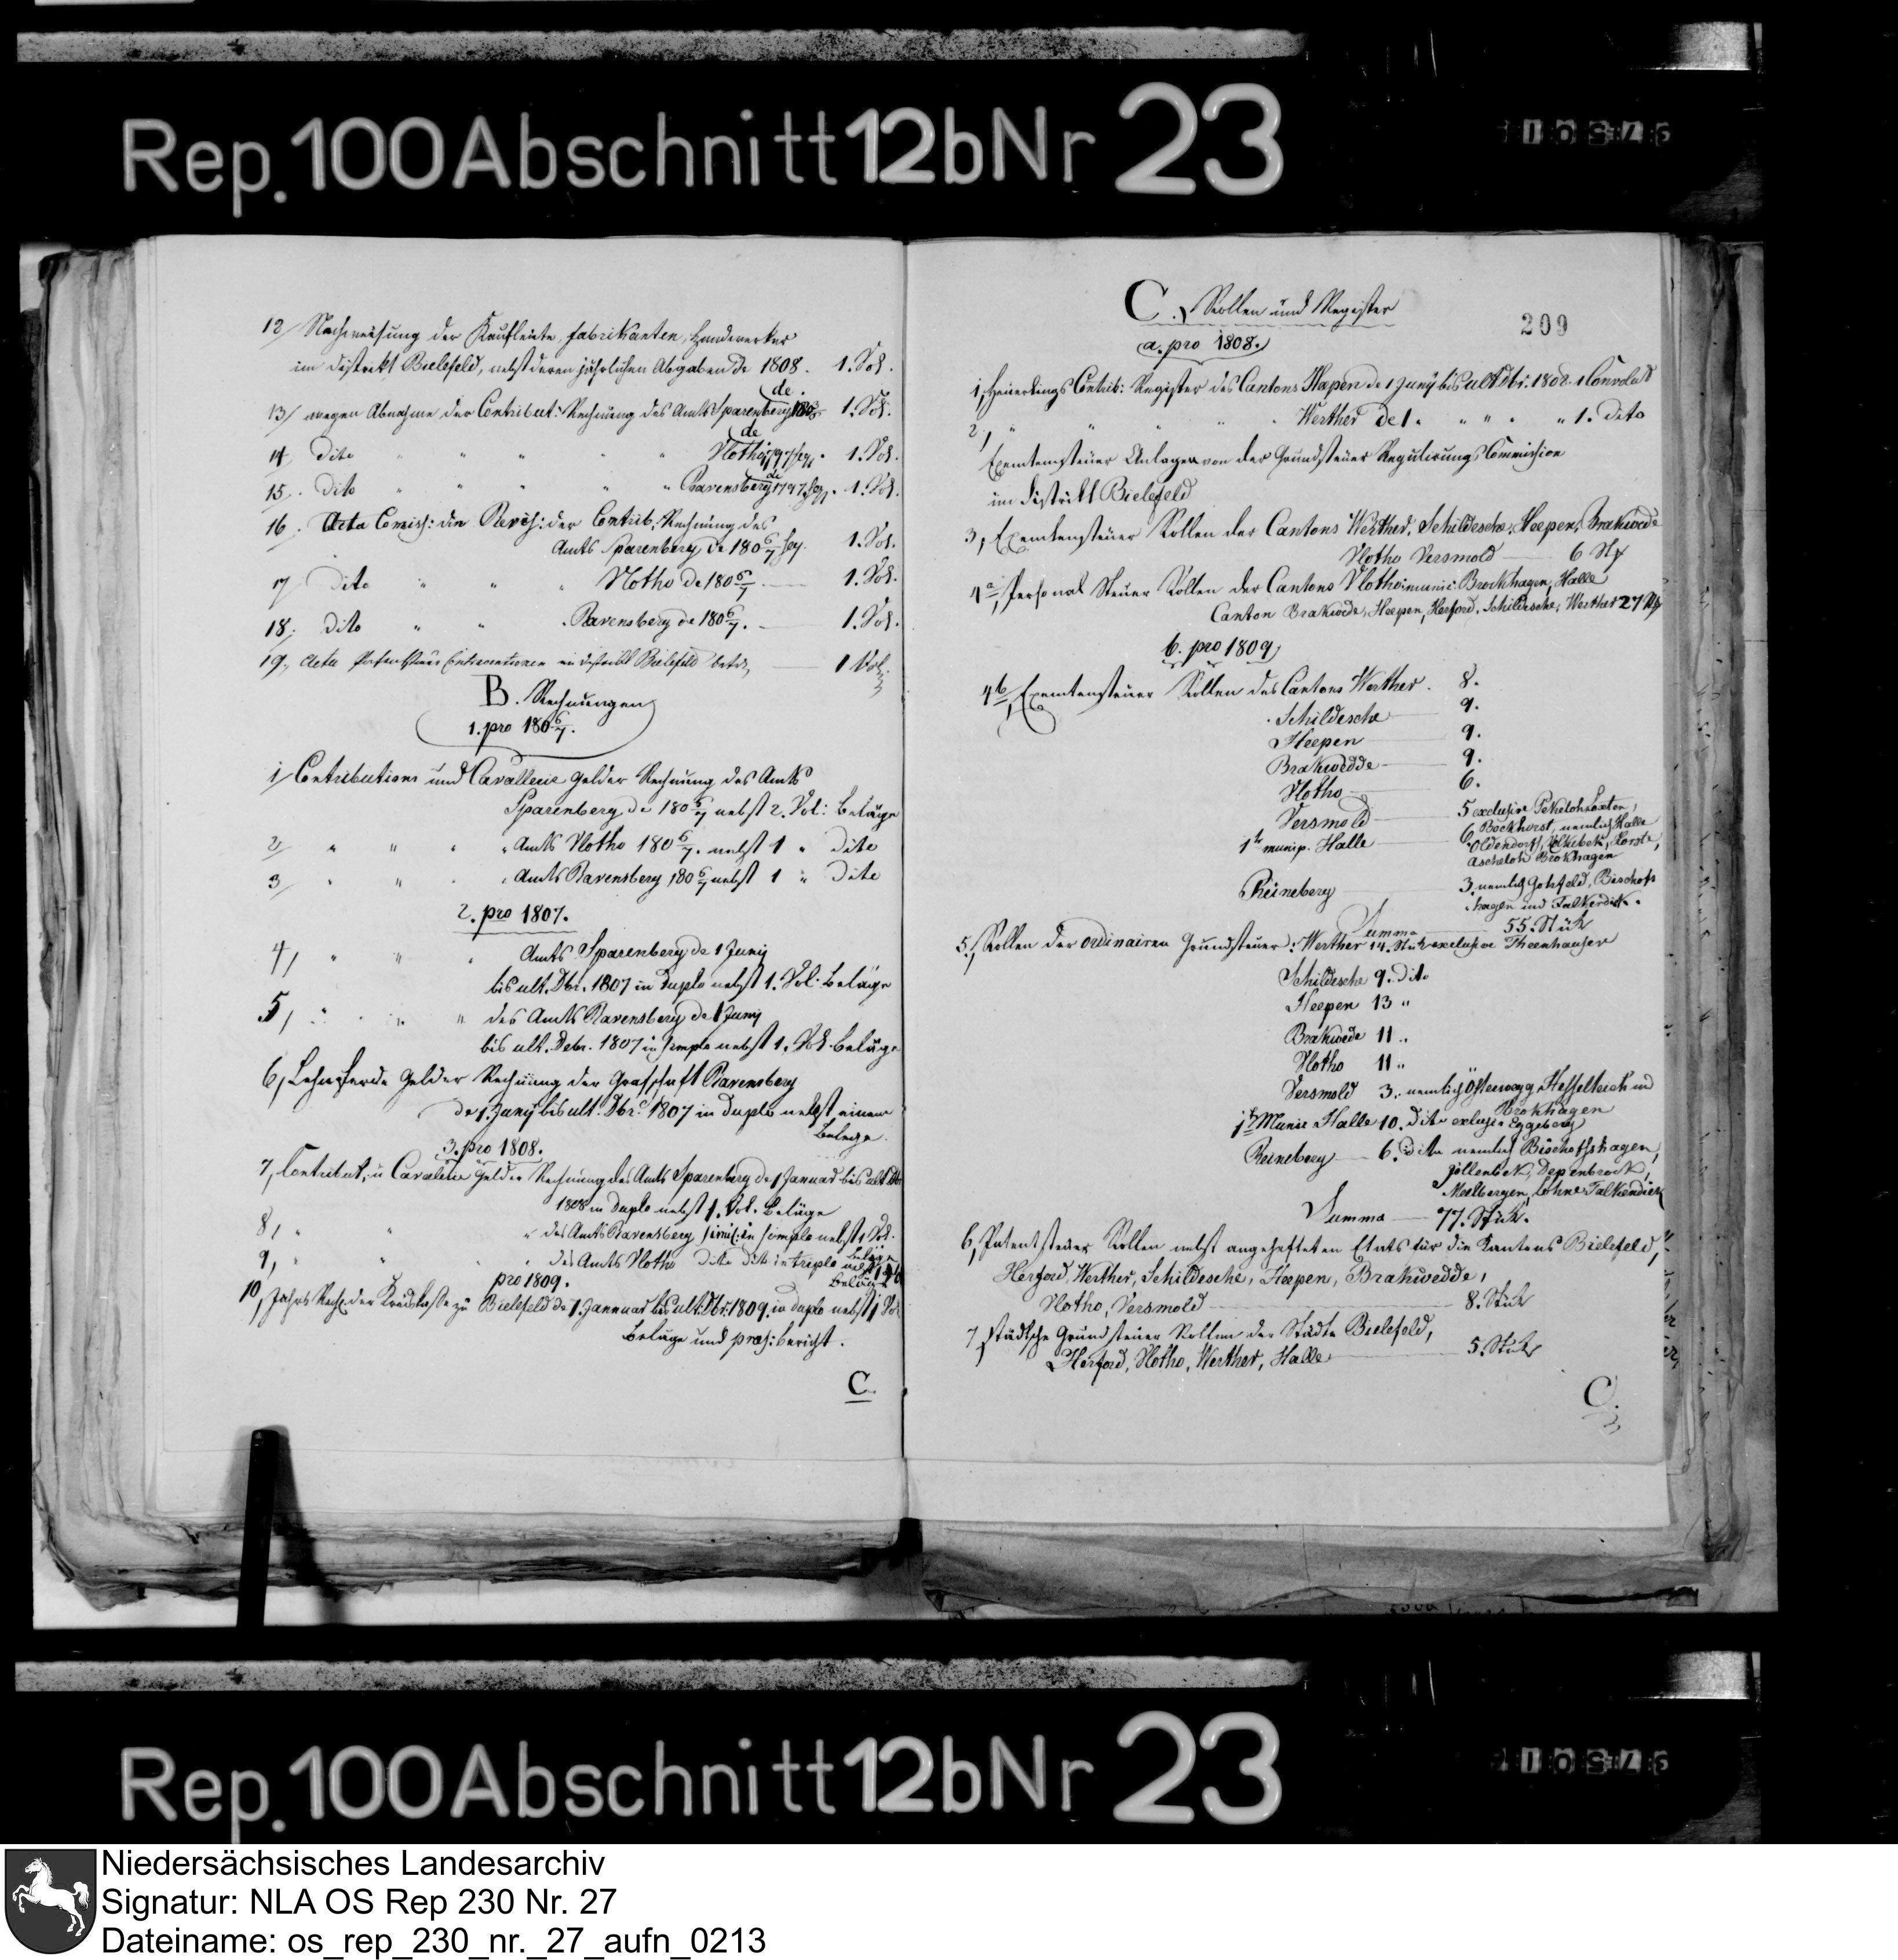 Rep. 100 Abschnitt 12b Nr 23
12/ Nachweisung der Kaufleute, Fabrikanten, Handwerker
im Distrikt Bielefeld, nebst deren jährlichen Abgaben de 1808. 1. Vol.
13/ wegen Abnahme der Contribut: Rechnung des Amts Sparenberg de 1. Vol.
14, dito " " " " Vlotho de 1797 seq. 1. Vol.
15. dito " " " " Ravensberg de 1797 seq. 1. Vol.
16. Acta Comiss: die Revis: der Contrib: Rechnung des
Amts Sparenberg de 180 6/7 seq. 1. Vol.
17 dito " " " Vlotho de 180 6/7. 1. Vol.
18. dito " " Ravensberg de 180 6/7. 1. Vol.
19, Acta im Distrikt Bielefeld betr, 1 Vol.
B. Rechnungen
1. pro 180 6/7.
1/ Contributions und Cavallerie Gelder Rechnung des Amts
Sparenberg de 180 6/7 nebst 2. Vol: Beläge
2/ " " " Amts Vlotho 180 6/7. nebst 1 " dito
3/ " " " Amts Ravensberg 180 6/7 nebst 1 " dito
2. pro 1807.
4, " " " Amts Sparenberg de 1 Juny
bis ult. Dbr. 1807 in duplo nebst 1. Vol: Beläge
5, " " " des Amts Ravensberg de 1 Juny
bis ult. Debr. 1807 in simplo nebst 1. Vol. Beläge
6, Lehnpferde Gelder Rechnung der Grafschaft Ravensberg
de 1. Juny bis ult. Dbr. 1807 in duplo nebst einem
Belege.
3. pro 1808.
7, Contribut, u Cavalerie Gelder Rechnung des Amts Sparenberg de 1 Januar bis ult Dbr
1808 in duplo nebst 1. Vol. Beläge
8, " " " des Amts Ravensberg simil: in simplo nebst 1 Vol.
Beläge
9, " " " des Amts Vlotho dito dito in triplo nebst 1 Vol
Beläge
pro 1809.
10, Jahres Rech. der Kreiskasse zu Bielefeld de 1. Januar bis ult. Dbr: 1809. in duplo nebst 1 Vol
Beläge und praes: bericht.
C.
C. Rollen und Register
209
a. pro 1808.
1, Heuerlings Contrib: Register des Cantons Heepen de 1 Juny bis ult Dbr. 1808. 1 Convolut
2, " " " " Werther de 1. " " " " 1. dito
Exemtensteuer Anlagen von der Grundsteuer Regulirungs Commission
im Distrikt Bielefeld
3, Exemtensteuer Rollen der Cantons Werther, Schildesche, Heepen, Brakwede
Vlotho Versmold 6 St
4a, Personal Steuer Rollen der Cantons Vlotho munic: Brockhagen, Halle
Canton Brakwede, Heepen, Herford, Schildesche, Werther 27 St
b. pro 1809
4b, Exemtensteuer Rollen des Cantons Werther. 8.
Schildesche 9.
Heepen 9.
Brakwedde 9.
Vlotho 6.
Versmold 5 exclusive Peckeloh Loxten,
1te munip. Halle 6 Bockhorst, nemlich Halle
Oldendorf, Kölkebek, Horste,
Ascheloh Brokhagen
Reineberg 3. nemlich Gohfeld, Bischofs
hagen und Falkendiek.
Summa 55. Stük
5, Rollen der ordinairen Grundsteuer: Werther 14. Stük exclusive Theenhausen
Schildesche 9. dito
Heepen 13 "
Brakwede 11 "
Vlotho 11 "
Versmold 3. nemlich Osterwegg Hesselteich und
Brokhagen
1te Munic. Halle 10. dito exclusive Eggeberg
Reineberg 6. dito nemlich Bischoffshagen,
Jöllenbek, Depenbrock,
Melbergen, Lohne Falkendiek
Summa 77. Stük.
6, Patentsteuer Rollen nebst angehefteten Etats für die Kantons Bielefeld,
Herford, Werther, Schildesche, Heepen, Brakwedde,
Vlotho, Versmold 8. Stük
7, Städtsche Grundsteuer Rollen der Städte Bielefeld,
Herford, Vlotho, Werther, Halle 5. Stük
C.
Rep. 100 Abschnitt 12b Nr 23
Niedersächsisches Landesarchiv
Signatur: NLA OS Rep 230 Nr. 27
Dateiname: os_rep_230_nr._27_aufn_0213